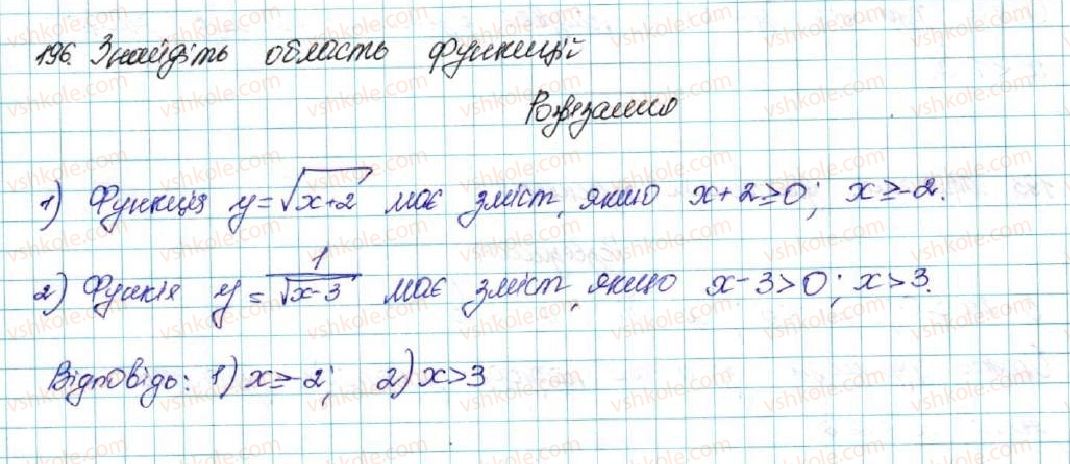 196. Знайдіть область функцій
Розв'язання
1) Функція y=√x+2 має зміст, якщо x+2≥0; x≥-2.
2) Функія y=1/√x-3 має зміст, якщо x-3>0; x>3.
Відповідь: 1) x≥-2; 2) x>3